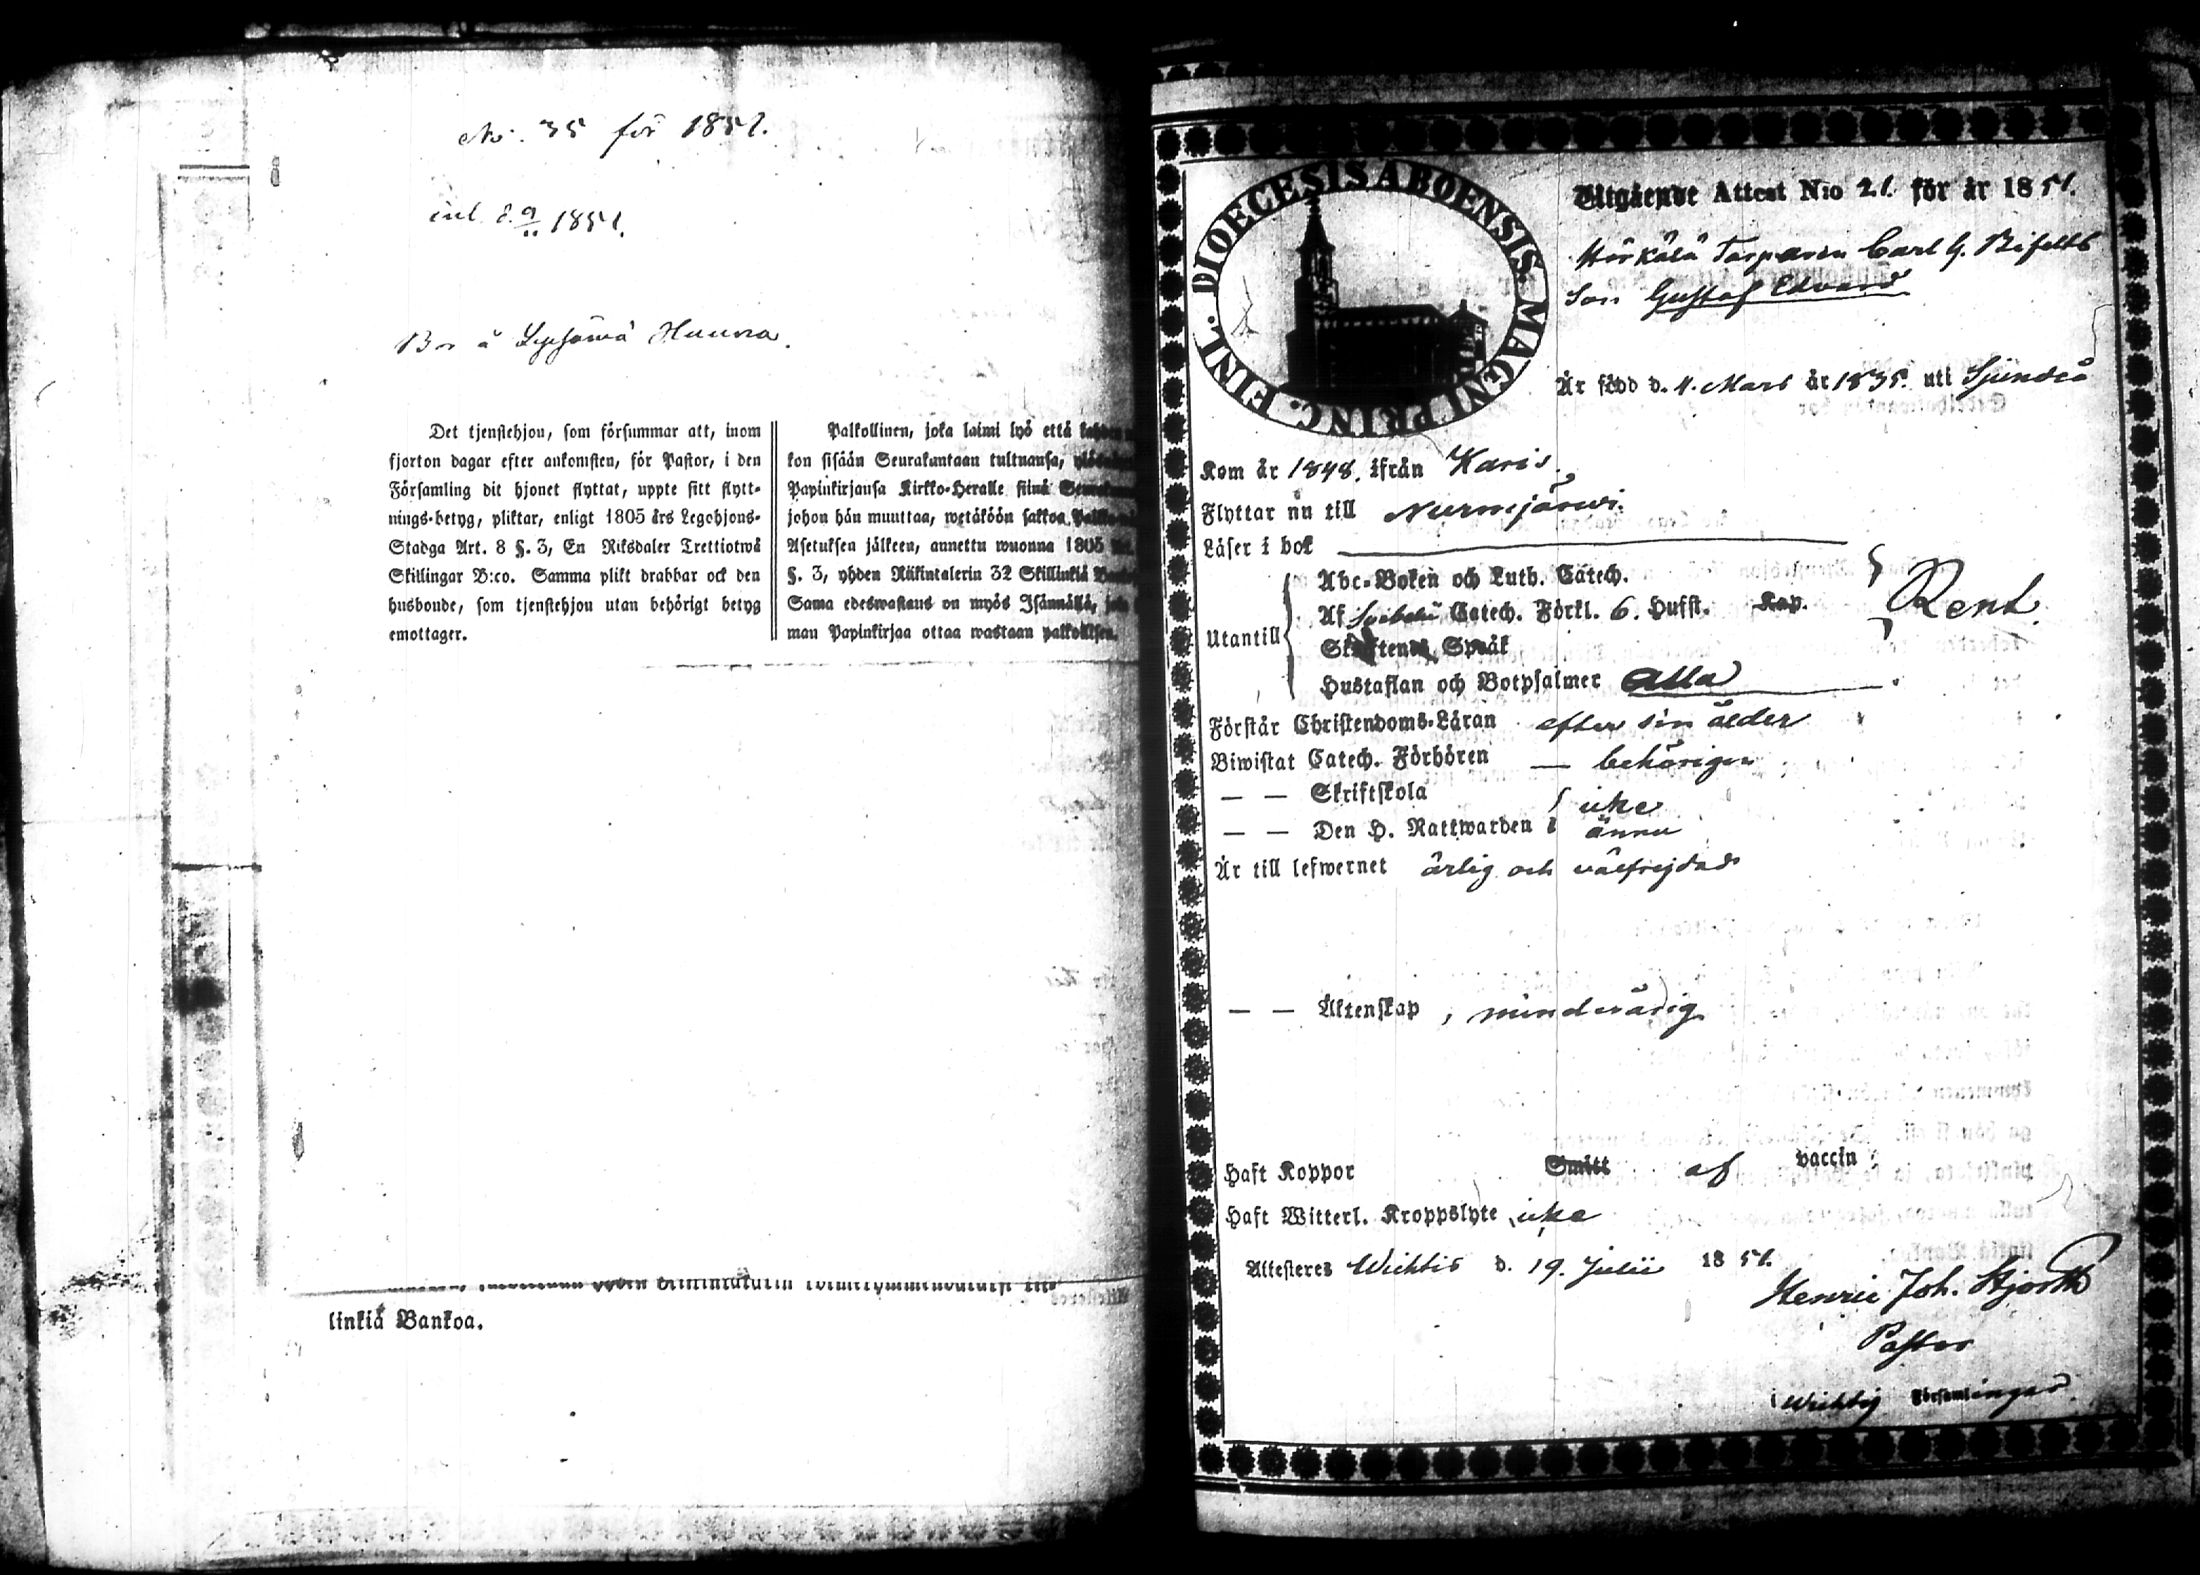 No. 35 för 1851.
inl. d. 9/11 1851.
Bor å Lepsämä Hunna.
Det tjenstehjon, som försummar att, inom
fjorton dagar efter ankomsten, för Pastor, i den
Församling dit hjonet flyttat, uppte sitt flytt-
nings-betyg, pliktar, enligt 1805 års Legohjons-
Stadga Art. 8 §. 3, En Riksdaler Trettiotwå
Skillingar B:co. Samma plikt drabbar ock den
husbonde, som tjenstehjon utan behörigt betyg
emottager.
Palkollinen, joka laimi lyö että
kon sisään Seurakuntaan tultuansa,
Papinkirjansa Kirkko-Heralle siinä
johon hän muuttaa, wetäköön sakkoa
Asetuksen jälkeen, annettu wuonna 1805
§. 3, yhden Riikintalerin 32 Skillinkiä
Sama edeswastaus on myös Isännällä,
man Papinkirjaa ottaa wastaan palkollisen.
linkiä Bankoa.
DIOECESIS ABOENSIS MAGNI PRINC. FINL.
Utgående Attest N:o 21. för år 1851.
Torparen Carl G.
Son Gustaf Edvard
Är född d. 4. Mars år 1835. uti Sjundeå
Kom år 1848. ifrån Karis.
Flyttar nu till Nurmijärvi.
Läser i bok
Abc-Boken och Luth. Catech.
Af Svebelii Catech. Förkl. 6. Hufst. Kap.
Utantill
Skriftenes Språk
Hustaflan och Botpsalmer alla
Rent.
Förstår Christendoms-Läran efter sin ålder
Biwistat Catech. Förhören — behörigen
— — Skriftskola icke
— — Den H. Nattwarden ännu
Är till lefwernet ärlig och välfrejdad
— — Äktenskap, minderårig
Haft Koppor Smitt af vaccin
Haft Witterl. Kroppslyte icke
Attesteres Wichtis d. 19. Julii 1851.
Henric Joh. Hjorth
Pastor
i Wichtis Församlingar.